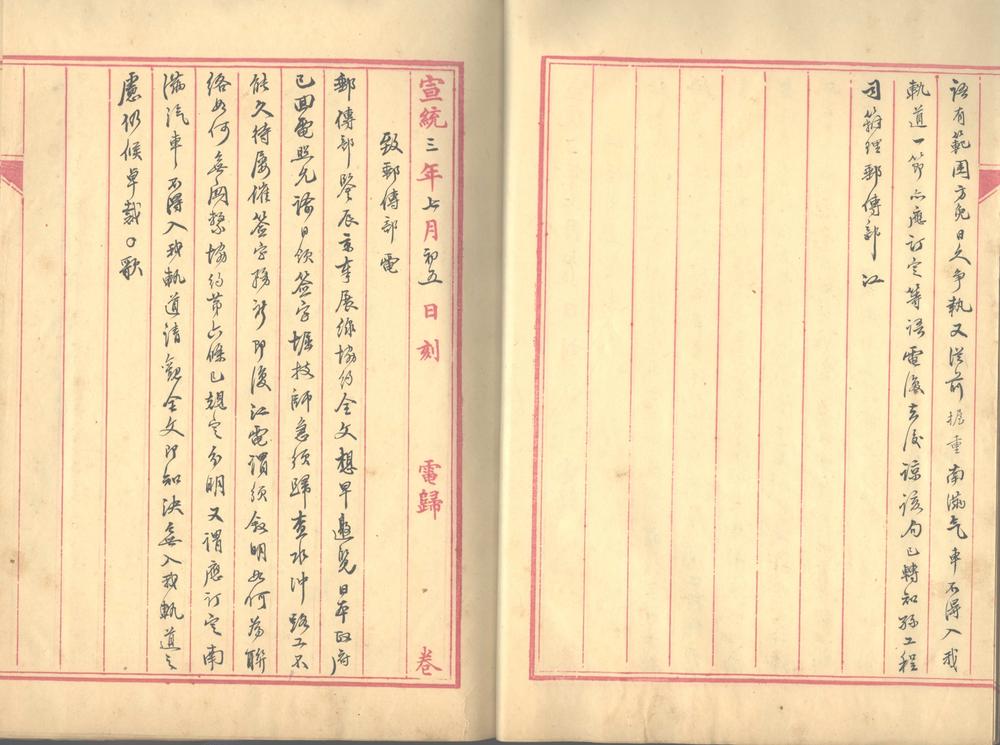 語有範圍方免日久爭執又從前擬重南滿气車不得入我
軌道一節亦應訂定等語電復去後諒該局已轉知孫工程
司籌理郵傳部 江
宣統三年七月初五日刻 電歸 卷
致郵傳部電
郵傳部鑒辰京奉展線協約全文想早邀覽日本政府
已回電照允諭日領簽字堀技師急須歸查水沖路工不
能久待屢催簽字務祈即復江電謂須敘明如何為聯
絡如何無關繫協約第六條已規定分明又謂應訂定南
滿汽車不得入我軌道請觀全文即知決無入我軌道之
慮仍候卓裁○歌